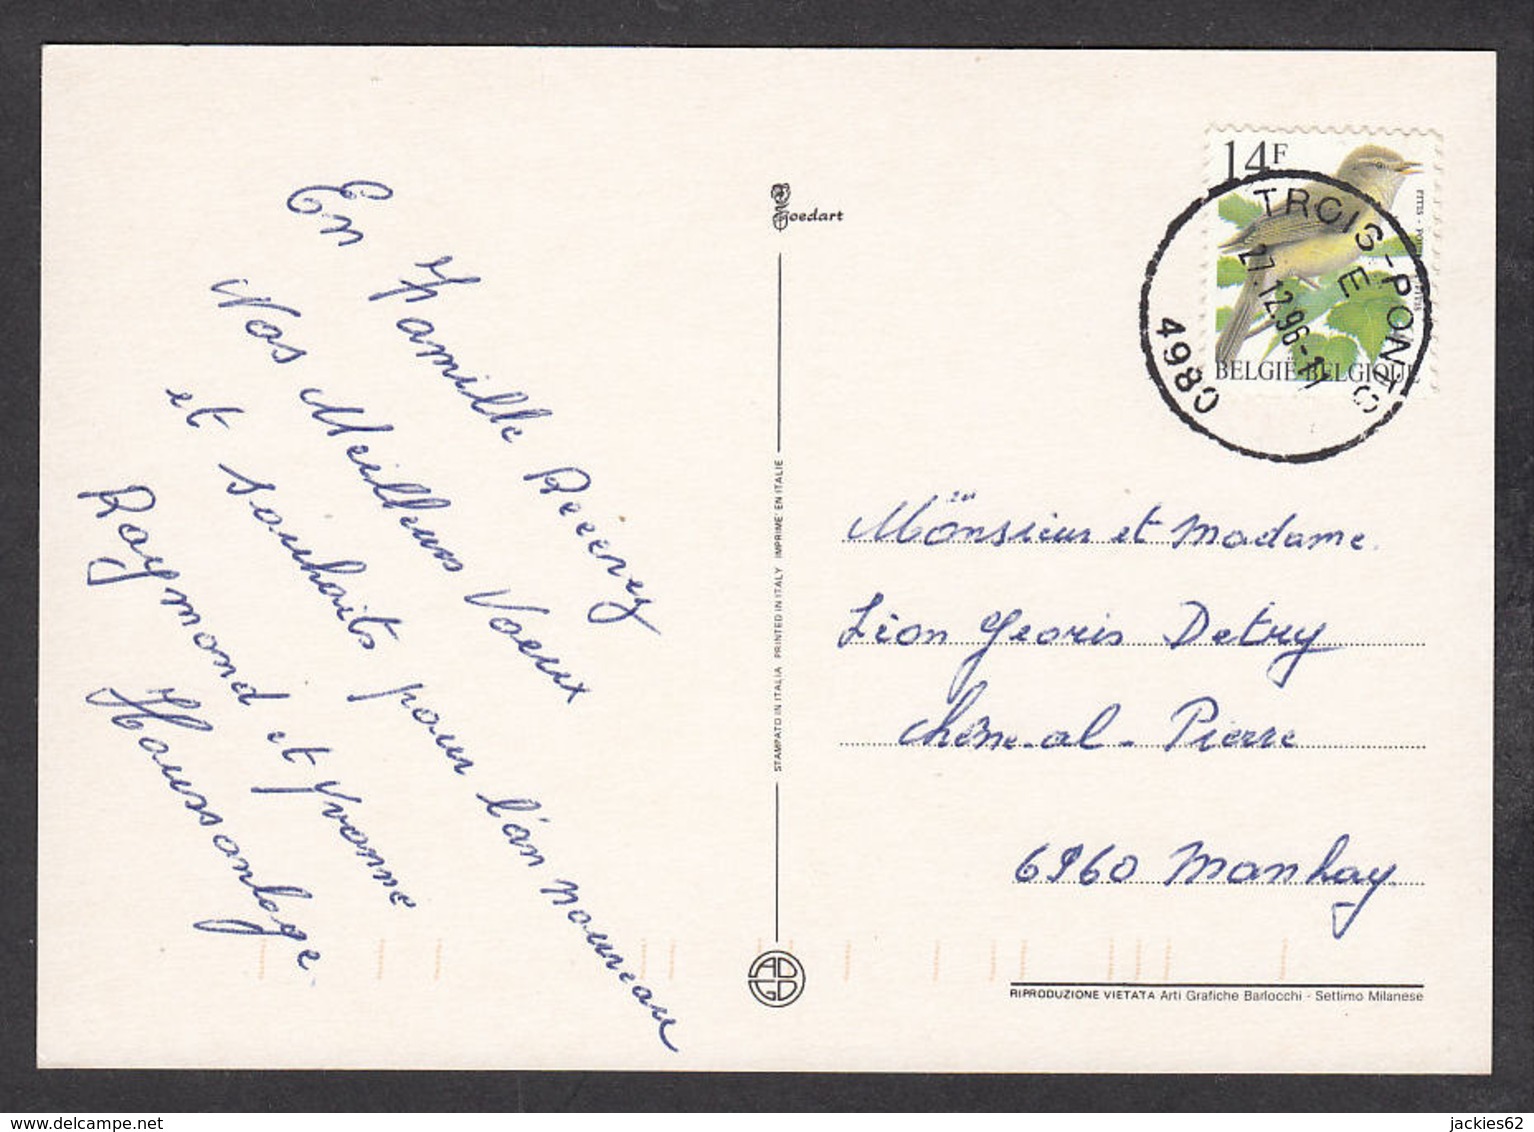 En famille
Nos Meilleurs Voeux
et souhaits pour l'an nouveau
Raymond et Yvonne
Haussonloge.
Goedart
STAMPATO IN ITALIA PRINTED IN ITALY IMPRIMÉ EN ITALIE
ADGD
14F
BELGIË-BELGIQUE
TROIS-PONTS
E
27.12.96-11
C8 4980
Monsieur et Madame.
Léon Georis Detry
Chêne-al-Pierre
6960 Manhay
RIPRODUZIONE VIETATA Arti Grafiche Barlocchi - Settimo Milanese
jackies62